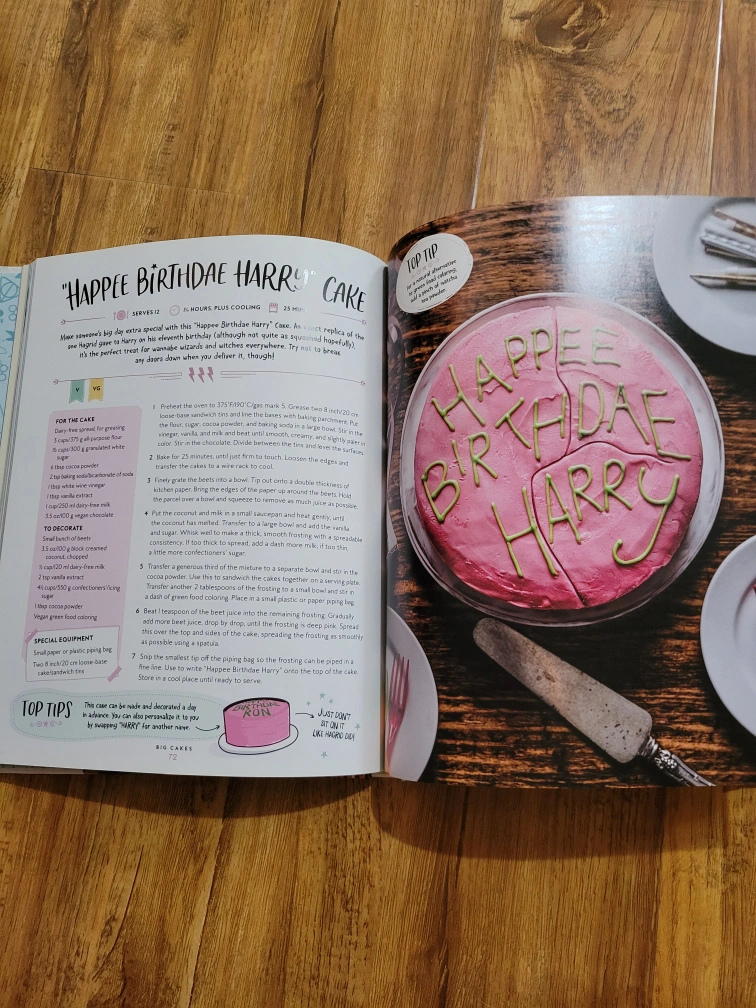 "HAPPEE BIRTHDAE HARRY" CAKE
SERVES 12
HOURS, PLUS COOLING
25
Make someone's big day extra special with this "Happee Birthdae Harry" Cake. An exact replica of the
one Hagrid gave to Harry on his eleventh birthday (although not quite as squashed hopefully),
it's the perfect treat for wannabe wizards and witches everywhere. Try not to break
any doors down when you deliver it, though!
V
VG
FOR THE CAKE
Dairy-free spread, for greasing
3 cups/375 g all-purpose flour
1½ cups/300 g granulated white
sugar
6 tbsp cocoa powder
2 tsp baking soda/bicarbonate of soda
1 tbsp white wine vinegar
1 tbsp vanilla extract
1 cup/250 ml dairy-free milk
3.5 oz/100 g vegan chocolate
TO DECORATE
Small bunch of beets
3.5 oz/100 g block creamed
coconut, chopped
½ cup/120 ml dairy-free milk
2 tsp vanilla extract
4½ cups/550 g confectioners'/icing
sugar
1 tbsp cocoa powder
Vegan green food coloring
SPECIAL EQUIPMENT
Small paper or plastic piping bag
Two 8 inch/20 cm loose-base
cake/sandwich tins
1 Preheat the oven to 375°F/190°C/gas mark 5. Grease two 8 inch/20 cm
loose-base sandwich tins and line the bases with baking parchment. Put
the flour, sugar, cocoa powder, and baking soda in a large bowl. Stir in the
vinegar, vanilla, and milk and beat until smooth, creamy, and slightly paler in
color. Stir in the chocolate. Divide between the tins and level the surfaces.
2 Bake for 25 minutes, until just firm to touch. Loosen the edges and
transfer the cakes to a wire rack to cool.
3 Finely grate the beets into a bowl. Tip out onto a double thickness of
kitchen paper. Bring the edges of the paper up around the beets. Hold
the parcel over a bowl and squeeze to remove as much juice as possible.
4 Put the coconut and milk in a small saucepan and heat gently, until
the coconut has melted. Transfer to a large bowl and add the vanilla
and sugar. Whisk well to make a thick, smooth frosting with a spreadable
consistency. If too thick to spread, add a dash more milk; if too thin,
a little more confectioners' sugar.
5 Transfer a generous third of the mixture to a separate bowl and stir in the
cocoa powder. Use this to sandwich the cakes together on a serving plate.
Transfer another 2 tablespoons of the frosting to a small bowl and stir in
a dash of green food coloring. Place in a small plastic or paper piping bag.
6 Beat 1 teaspoon of the beet juice into the remaining frosting. Gradually
add more beet juice, drop by drop, until the frosting is deep pink. Spread
this over the top and sides of the cake, spreading the frosting as smoothly
as possible using a spatula.
7 Snip the smallest tip off the piping bag so the frosting can be piped in a
fine line. Use to write "Happee Birthdae Harry" onto the top of the cake.
Store in a cool place until ready to serve.
TOP TIPS
This cake can be made and decorated a day
in advance. You can also personalize it to you
by swapping "HARRY" for another name.
BIRTHDAE
RON
JUST DON'T
SIT ON IT
LIKE HAGRID DID!
BIG CAKES
72
TOP TIP
For a natural alternative
to green food coloring,
add a pinch of matcha
tea powder.
HAPPEE
BIRTHDAE
HARRY